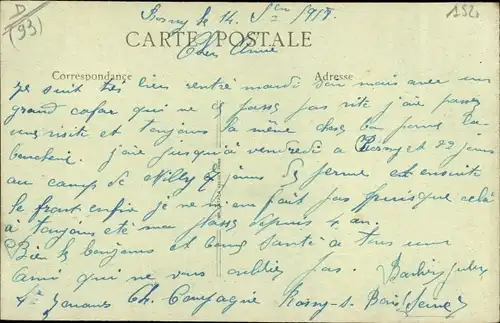 D
(93)
152
Rosny le 14 1918
CARTE POSTALE
Cher Amie
Correspondance
Adresse
je suit très bien rentré mardi mais avec un
grand cafar qui ne passe pas vite j'aie passer
une visite et toujours la même chose bon pour la
boucherie. j'aie jusqu'à vendredi a Rosny et 22 jours
au camps de 7 jours de ferme et ensuite
le front enfin je ne m'en fait pas puisque cela
à toujours été ma place depuis 4 an.
Bien le bonjour et bonne Santé a tous un
ami qui ne vous oublies pas.
4e Zouaves Compagnie Rosny-s-Bois Seine